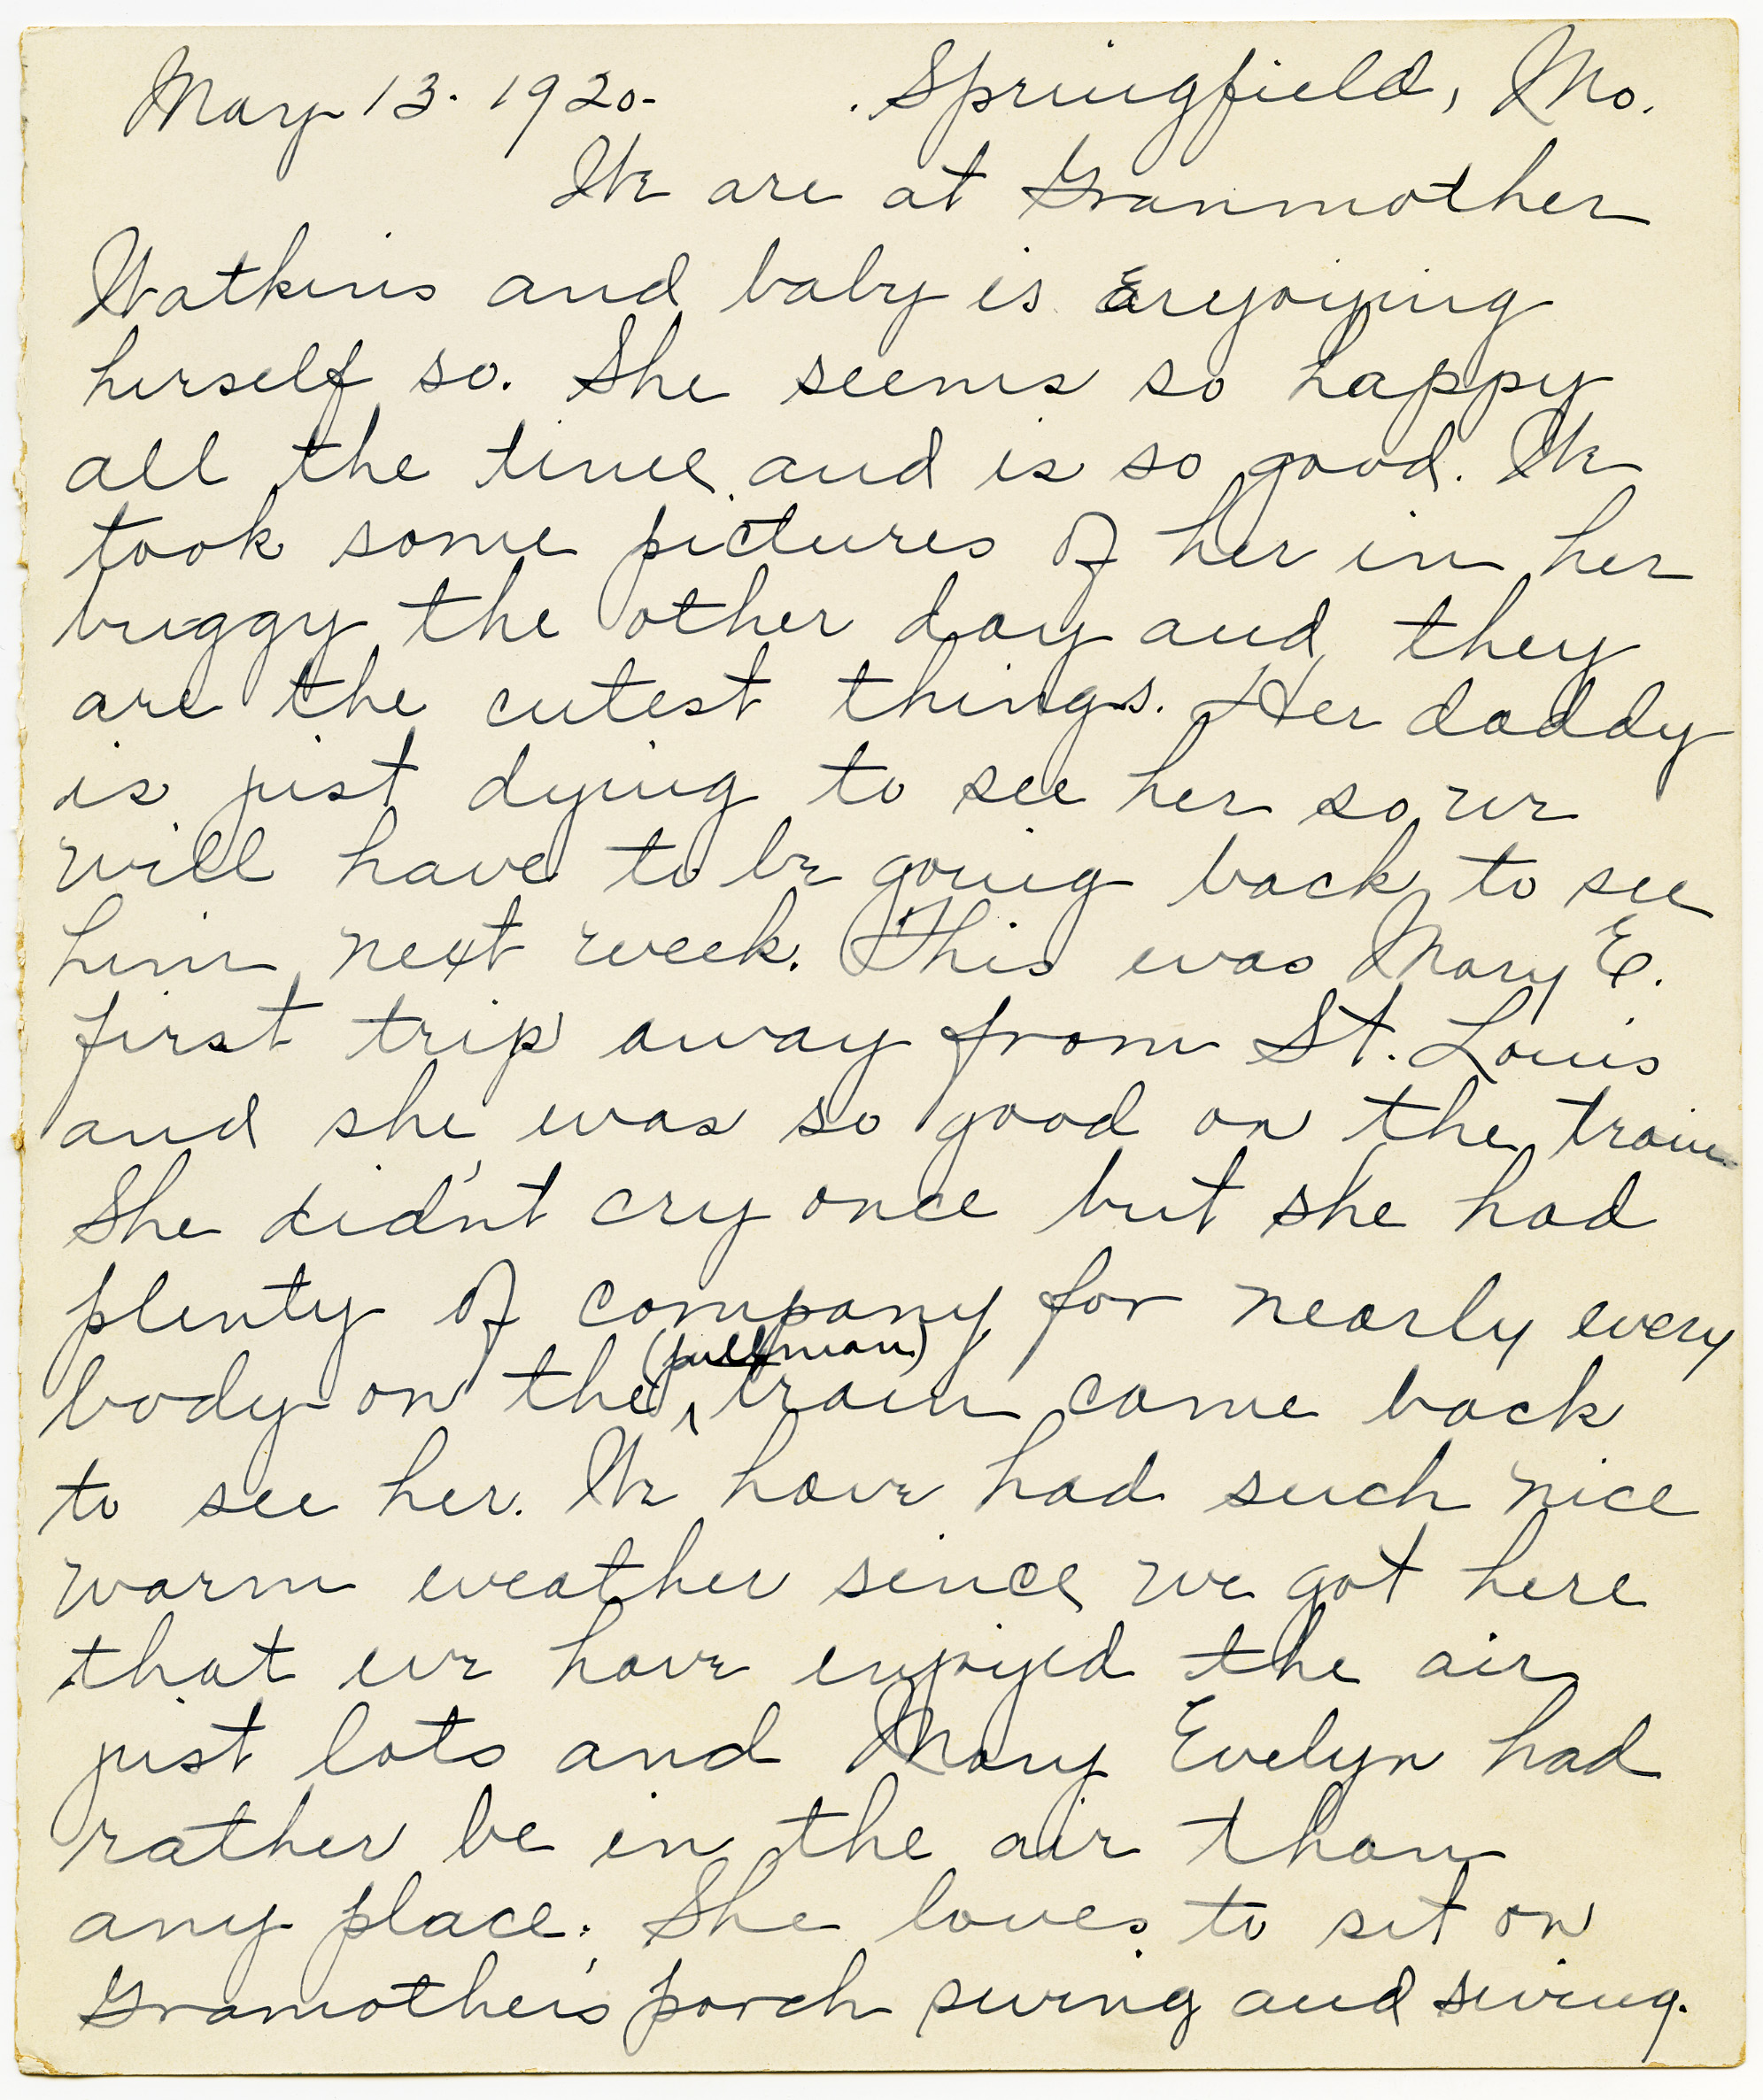 May 13. 1920. Springfield, Mo.
We are at Granmother
Watkins and baby is enjoying
herself so. She seems so happy
all the time and is so good. We
took some pictures of her in her
buggy the other day and they
are the cutest things. Her daddy
is just dying to see her so we
will have to be going back to see
him next week. This was Mary E.
first trip away from St. Louis
and she was so good on the train
She didn't cry once but she had
plenty of company for nearly every
(pullman)
body on the train came back
to see her. We have had such nice
warm weather since we got here
that we have enjoyed the air
just lots and Mary Evelyn had
rather be in the air than
any place. She loves to sit on
Gramother's porch swing and swing.